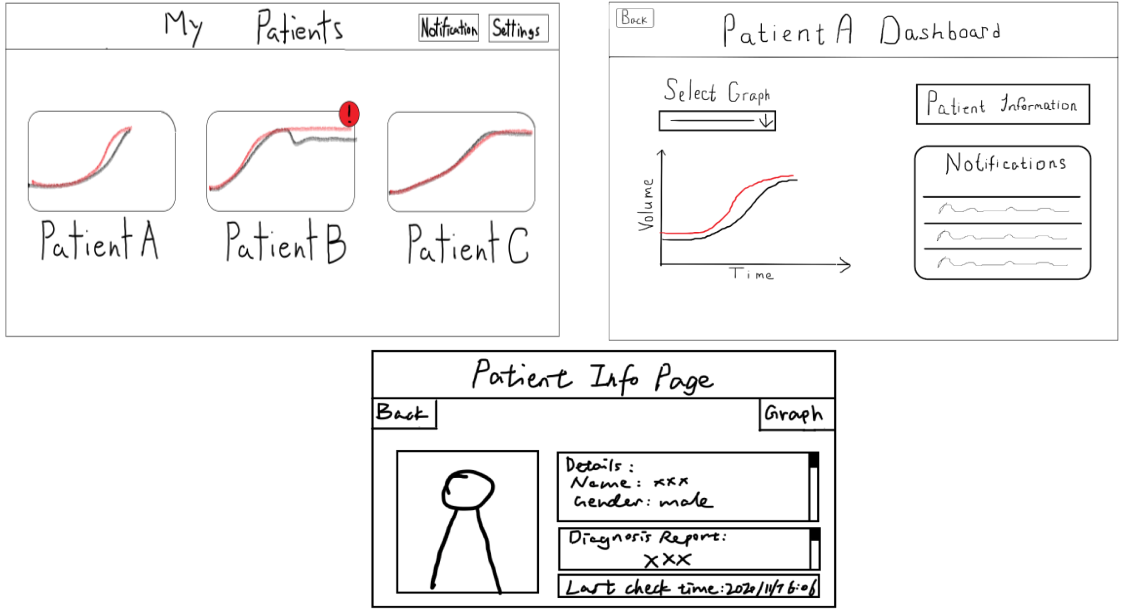 My Patients
Notification Settings
!
Patient A Patient B Patient C
Back
Patient A Dashboard
Select Graph
Patient Information
Notifications
Volume
Time
Patient Info Page
Back
Graph
Details:
Name: xxx
Gender: male
Diagnosis Report:
xxx
Last check time: 2020/11/7 6:06